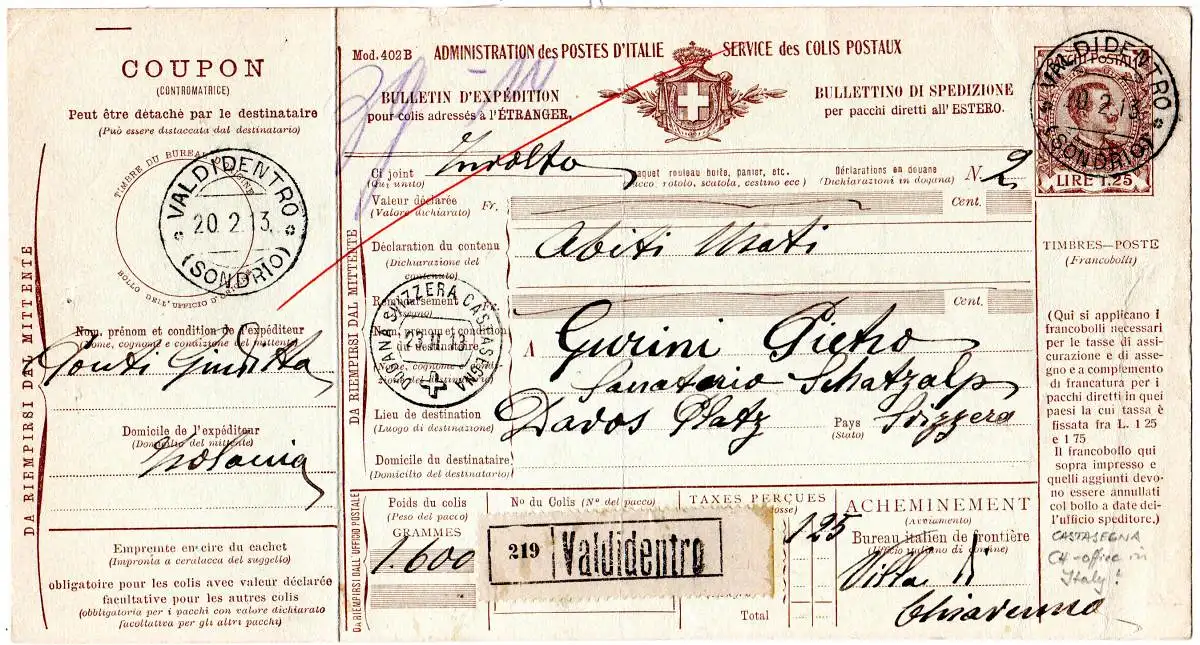 COUPON
(CONTROMATRICE)
Peut être détaché par le destinataire
(Può essere distaccata dal destinatario)
TIMBRE DU BUREAU D'ORIGINE
VALDIDENTRO
20.2.13.
(SONDRIO)
BOLLO DELL'UFFICIO D'
DA RIEMPIRSI DAL MITTENTE
Nom, prénom et condition de l'expéditeur
(Nome, cognome e condizione del mittente)
Domicile de l'expéditeur
(Domicilio del mittente)
Empreinte en cire du cachet
(Impronta a ceralacca del suggello)
obligatoire pour les colis avec valeur déclarée
facultative pour les autres colis
(obbligatoria per i pacchi con valore dichiarato
facoltativa per gli altri pacchi)
Mod. 402 B
ADMINISTRATION des POSTES D'ITALIE
SERVICE des COLIS POSTAUX
BULLETIN D'EXPÉDITION
pour colis adressés à l'ÉTRANGER.
BULLETTINO DI SPEDIZIONE
per pacchi diretti all'ESTERO.
VALDIDENTRO
20.2.13
(SONDRIO)
PACCHI POSTALI
LIRE 1.25
Ci joint
(Qui unito)
Involto
paquet rouleau boite, panier, etc.
pacco, rotolo, scatola, cestino ecc )
Déclarations en douane
(Dichiarazioni in dogana)
N. 2
Valeur déclarée
(Valore dichiarato)
Fr.
Cent.
DA RIEMPIRSI DAL MITTENTE
Déclaration du contenu
(Dichiarazione del
contenuto)
Abiti Usati
Remboursement
(Assegno)
Cent.
DOGANA SVIZZERA CASTASEGNA
Nom, prénom et condition
du destinataire
(Nome, cognome e condi-
zione del destinatario)
A
Gurini Pietro
Sanatorio Schatzalp
Lieu de destination
(Luogo di destinazione)
Davos Platz
Pays
(Stato)
Svizzera
Domicile du destinataire
(Domicilio del destinatario)
TIMBRES—POSTE
(Francobolli)
(Qui si applicano i
francobolli necessari
per le tasse di assi-
curazione e di asse-
gno e a complemento
di francatura per i
pacchi diretti in quei
paesi la cui tassa è
fissata fra L. 1 25
e 1 75
Il francobollo qui
sopra impresso e
quelli aggiunti devo-
no essere annullati
col bollo a date del-
l'ufficio speditore.)
CASTASEGNA
CH-office in
Italy!
DA RIEMPIRSI DALL'UFFICIO POSTALE
Poids du colis
(Peso del pacco)
GRAMMES
1.600
No du Colis (No del pacco)
219 Valdidentro
TAXES PERÇUES
1 25
Total
ACHEMINEMENT
(Avviamento)
Bureau italien de frontière
(Ufficio italiano di confine)
Villa di
Chiavenna